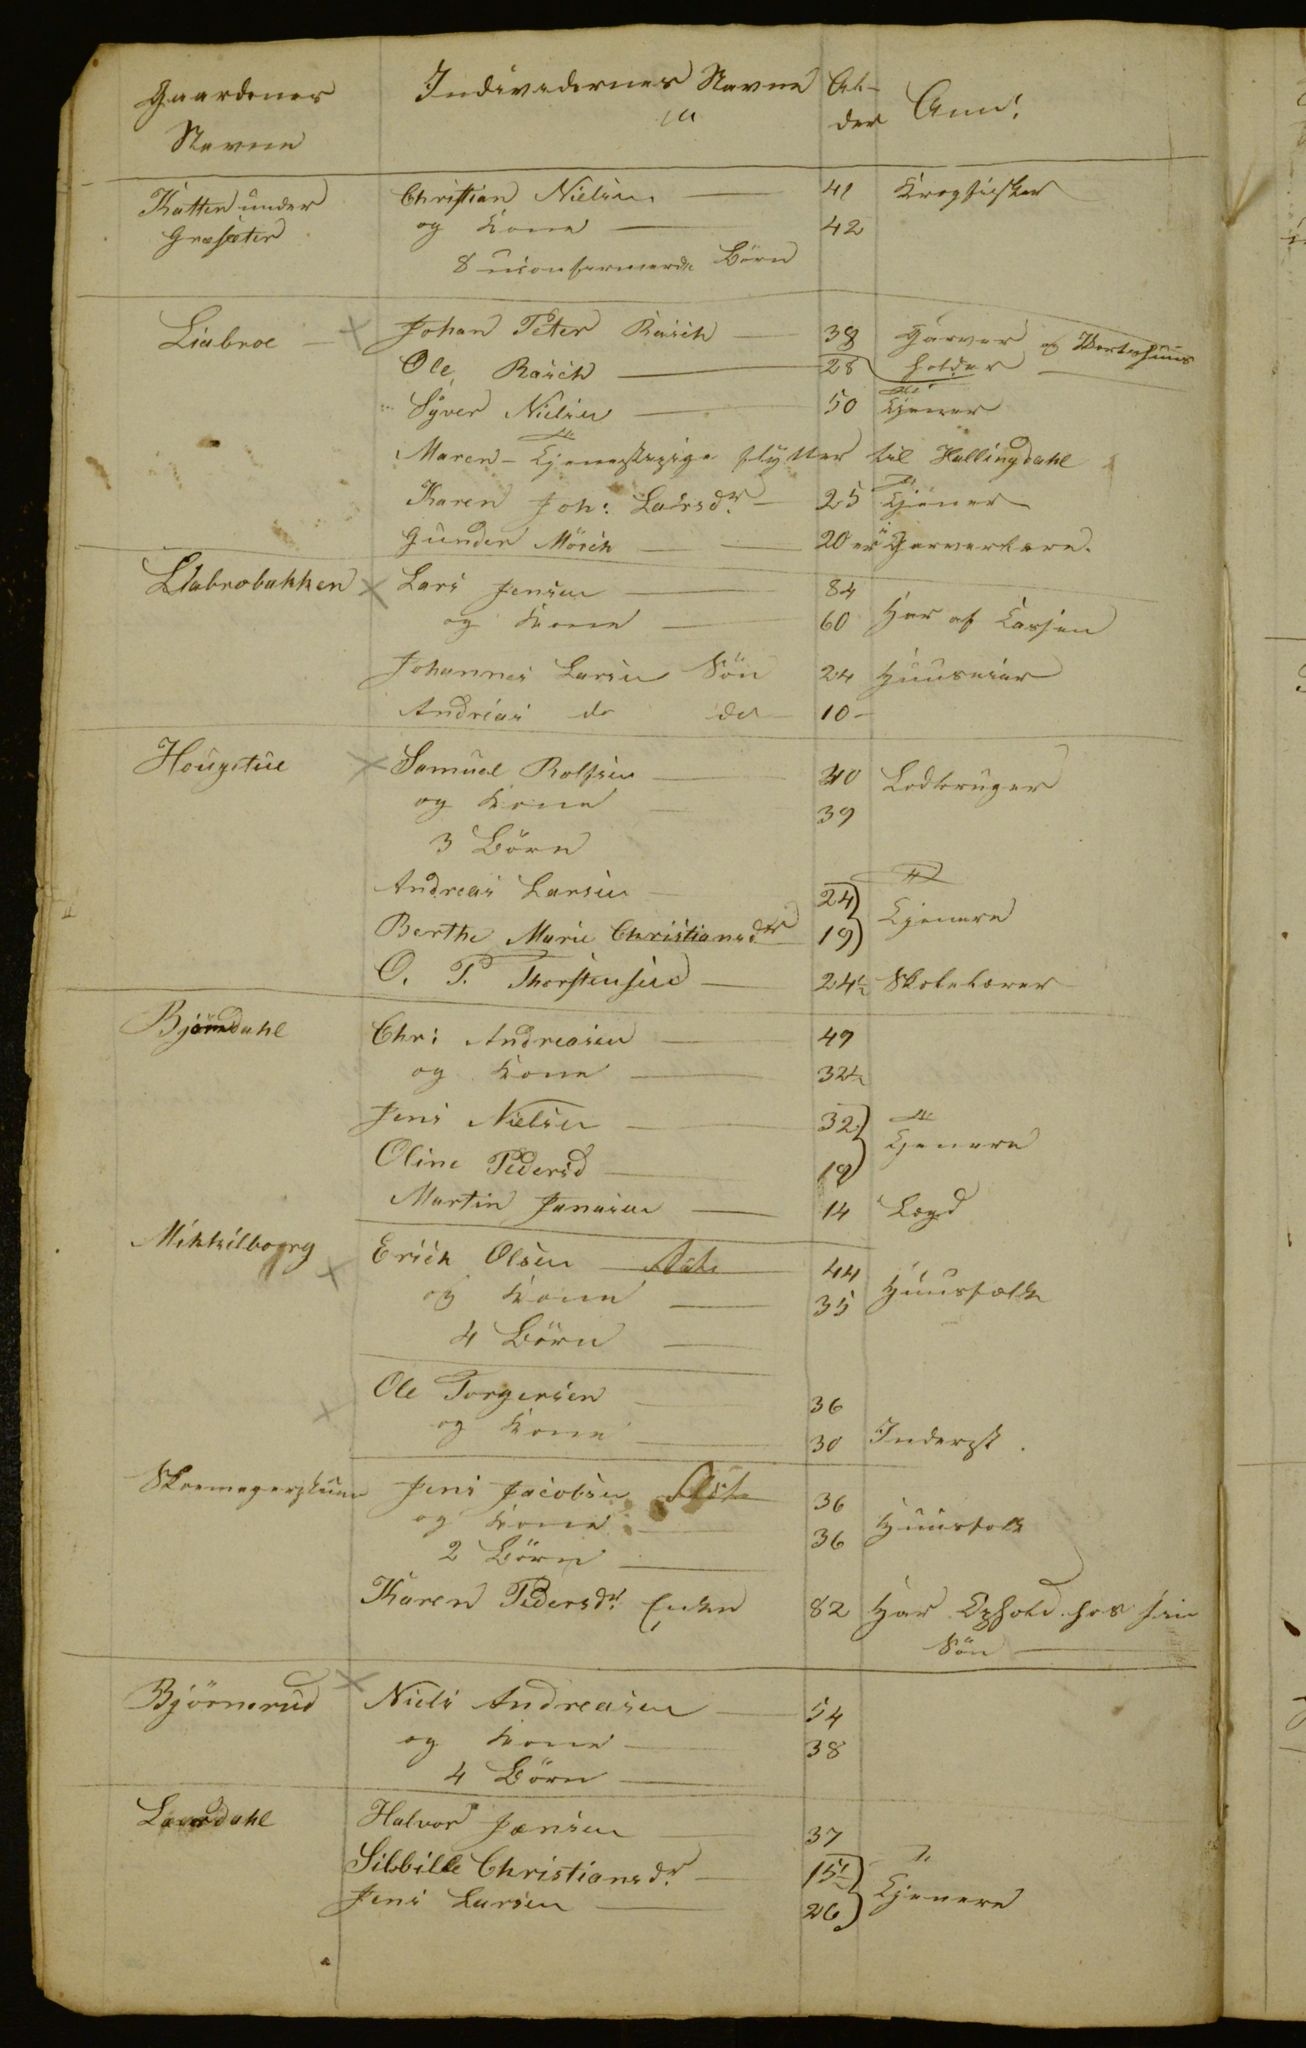 Gaardenes Navne | Individernes Navne | Al-der | Anm:
Katten under | Christian Nielsen — | 41 | Krogfisker
Græseter | og Kone — | 42
8 uconfirmerde Börn
Liabroe — | Johan Peter Rasch — | 38 | Garver og Vertshuus
Ole Rasch — | 28 | holder
Syver Nielsen — | 50 | Tjener
Maren - Tjenestepige flytter til Hallingdahl
Karen Joh: Larsdr — | 25 | Tjener
Gunder Mörch — | 20 | er i Garverlære.
Liabrobakken | Lars Jensen — | 84
og Kone — | 60 | Har af Cassen
Johannes Larsen Sön | 24 | Huuseier
Andreas do do | 10 -
Hougstue | Samuel Rolfsen — | 40 | Lodbruger
og Kone — | 39
3 Börn
Andreas Larsen — | 24
Berthe Marie Christiansdr | 19 | Tjenere
O. P. Thorstensen — | 24½ | Skolelærer
Björndahl | Chr: Andreasen — | 49
og Kone — | 32½
Jens Nielsen — | 32 | Tjenere
Oline Pedersd — | 19
Martin Jensen — | 14 | Lægd
Mikkilborg | Erich Olsen — | 44 | Huusfolk
og Kone — | 35
4 Börn —
Ole Torgersen — | 36
og Kone — | 30 | Inderst.
Skomagerstuen | Jens Jacobsen | 36 | Huusfolk
og Kone — | 36
2 Börn —
Karen Pedersdr Enke | 82 | Har Ophold hos sin
Sön —
Björnerud | Niels Andreasen — | 54
og Kone — | 38
4 Börn —
Laurdahl | Halvor Jensen — | 37
Sibbille Christiansdr — | 15½ | Tjenere
Jens Larsen — | 26